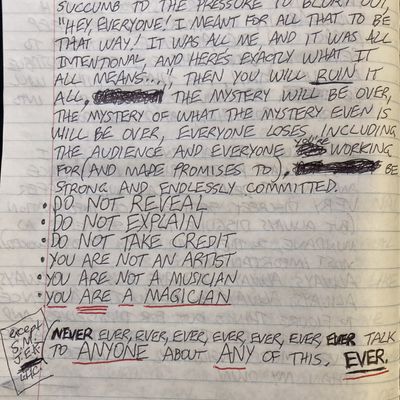 SUCCUMB TO THE PRESSURE TO BLURT OUT,
"HEY, EVERYONE! I MEANT FOR ALL THAT TO BE
THAT WAY! IT WAS ALL ME, AND IT WAS ALL
INTENTIONAL, AND HERE'S EXACTLY WHAT IT
ALL MEANS...", THEN YOU WILL RUIN IT
ALL, THE MYSTERY WILL BE OVER,
THE MYSTERY OF WHAT THE MYSTERY EVEN IS
WILL BE OVER, EVERYONE LOSES, INCLUDING
THE AUDIENCE AND EVERYONE YOU'RE WORKING
FOR (AND MADE PROMISES TO). BE
STRONG AND ENDLESSLY COMMITTED.
• DO NOT REVEAL
• DO NOT EXPLAIN
• DO NOT TAKE CREDIT
• YOU ARE NOT AN ARTIST
• YOU ARE NOT A MUSICIAN
• YOU ARE A MAGICIAN
NEVER EVER, EVER, EVER, EVER, EVER, EVER EVER TALK
TO ANYONE ABOUT ANY OF THIS. EVER.
except
S.M.